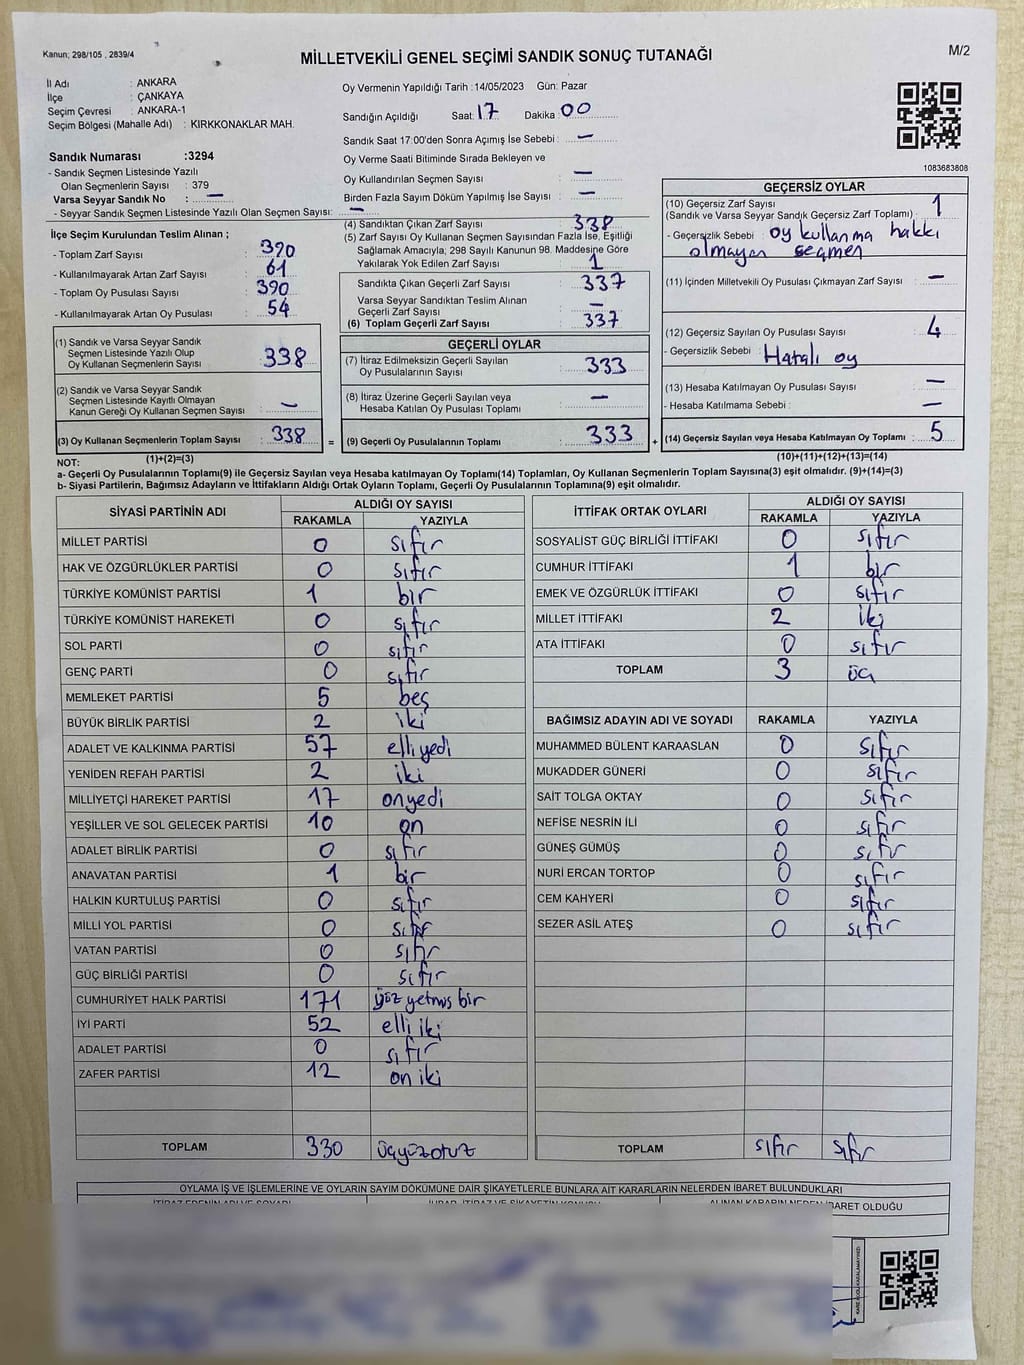 Kanun; 298/105 , 2839/4
MİLLETVEKİLİ GENEL SEÇİMİ SANDIK SONUÇ TUTANAĞI
M/2
İl Adı : ANKARA
İlçe : ÇANKAYA
Seçim Çevresi : ANKARA-1
Seçim Bölgesi (Mahalle Adı) : KIRKKONAKLAR MAH.
Sandık Numarası :3294
- Sandık Seçmen Listesinde Yazılı
Olan Seçmenlerin Sayısı : 379
Varsa Seyyar Sandık No : —
- Seyyar Sandık Seçmen Listesinde Yazılı Olan Seçmen Sayısı: —
İlçe Seçim Kurulundan Teslim Alınan ;
- Toplam Zarf Sayısı : 390
- Kullanılmayarak Artan Zarf Sayısı : 61
- Toplam Oy Pusulası Sayısı : 390
- Kullanılmayarak Artan Oy Pusulası : 54
(1) Sandık ve Varsa Seyyar Sandık
Seçmen Listesinde Yazılı Olup
Oy Kullanan Seçmenlerin Sayısı : 338
(2) Sandık ve Varsa Seyyar Sandık
Seçmen Listesinde Kayıtlı Olmayan
Kanun Gereği Oy Kullanan Seçmen Sayısı : —
(3) Oy Kullanan Seçmenlerin Toplam Sayısı : 338
(1)+(2)=(3)
Oy Vermenin Yapıldığı Tarih :14/05/2023 Gün: Pazar
Sandığın Açıldığı Saat: 17 Dakika: 00
Sandık Saat 17:00'den Sonra Açımış İse Sebebi : —
Oy Verme Saati Bitiminde Sırada Bekleyen ve
Oy Kullandırılan Seçmen Sayısı : —
Birden Fazla Sayım Döküm Yapılmış İse Sayısı : —
(4) Sandıktan Çıkan Zarf Sayısı : 338
(5) Zarf Sayısı Oy Kullanan Seçmen Sayısından Fazla İse, Eşitliği
Sağlamak Amacıyla; 298 Sayılı Kanunun 98. Maddesine Göre
Yakılarak Yok Edilen Zarf Sayısı : 1
Sandıkta Çıkan Geçerli Zarf Sayısı : 337
Varsa Seyyar Sandıktan Teslim Alınan
Geçerli Zarf Sayısı : —
(6) Toplam Geçerli Zarf Sayısı : 337
GEÇERLİ OYLAR
(7) İtiraz Edilmeksizin Geçerli Sayılan
Oy Pusulalarının Sayısı : 333
(8) İtiraz Üzerine Geçerli Sayılan veya
Hesaba Katılan Oy Pusulası Toplamı : —
= (9) Geçerli Oy Pusulalarının Toplamı : 333 +
1083683808
GEÇERSİZ OYLAR
(10) Geçersiz Zarf Sayısı
(Sandık ve Varsa Seyyar Sandık Geçersiz Zarf Toplamı) : 1
- Geçersizlik Sebebi : oy kullanma hakkı
olmayan seçmen
(11) İçinden Milletvekili Oy Pusulası Çıkmayan Zarf Sayısı : —
(12) Geçersiz Sayılan Oy Pusulası Sayısı : 4
- Geçersizlik Sebebi : Hatalı oy
(13) Hesaba Katılmayan Oy Pusulası Sayısı : —
- Hesaba Katılmama Sebebi : —
(14) Geçersiz Sayılan veya Hesaba Katılmayan Oy Toplamı : 5
(10)+(11)+(12)+(13)=(14)
NOT:
a- Geçerli Oy Pusulalarının Toplamı(9) ile Geçersiz Sayılan veya Hesaba katılmayan Oy Toplamı(14) Toplamları, Oy Kullanan Seçmenlerin Toplam Sayısına(3) eşit olmalıdır. (9)+(14)=(3)
b- Siyasi Partilerin, Bağımsız Adayların ve İttifakların Aldığı Ortak Oyların Toplamı, Geçerli Oy Pusulalarının Toplamına(9) eşit olmalıdır.
SİYASİ PARTİNİN ADI ALDIĞI OY SAYISI
RAKAMLA YAZIYLA
MİLLET PARTİSİ 0 sıfır
HAK VE ÖZGÜRLÜKLER PARTİSİ 0 sıfır
TÜRKİYE KOMÜNİST PARTİSİ 1 bir
TÜRKİYE KOMÜNİST HAREKETİ 0 sıfır
SOL PARTİ 0 sıfır
GENÇ PARTİ 0 sıfır
MEMLEKET PARTİSİ 5 beş
BÜYÜK BİRLİK PARTİSİ 2 iki
ADALET VE KALKINMA PARTİSİ 57 elli yedi
YENİDEN REFAH PARTİSİ 2 iki
MİLLİYETÇİ HAREKET PARTİSİ 17 onyedi
YEŞİLLER VE SOL GELECEK PARTİSİ 10 on
ADALET BİRLİK PARTİSİ 0 sıfır
ANAVATAN PARTİSİ 1 bir
HALKIN KURTULUŞ PARTİSİ 0 sıfır
MİLLİ YOL PARTİSİ 0 sıfır
VATAN PARTİSİ 0 sıfır
GÜÇ BİRLİĞİ PARTİSİ 0 sıfır
CUMHURİYET HALK PARTİSİ 171 yüz yetmiş bir
İYİ PARTİ 52 elli iki
ADALET PARTİSİ 0 sıfır
ZAFER PARTİSİ 12 on iki
TOPLAM 330 üçyüzotuz
İTTİFAK ORTAK OYLARI ALDIĞI OY SAYISI
RAKAMLA YAZIYLA
SOSYALİST GÜÇ BİRLİĞİ İTTİFAKI 0 sıfır
CUMHUR İTTİFAKI 1 bir
EMEK VE ÖZGÜRLÜK İTTİFAKI 0 sıfır
MİLLET İTTİFAKI 2 iki
ATA İTTİFAKI 0 sıfır
TOPLAM 3 üç
BAĞIMSIZ ADAYIN ADI VE SOYADI RAKAMLA YAZIYLA
MUHAMMED BÜLENT KARAASLAN 0 sıfır
MUKADDER GÜNERİ 0 sıfır
SAİT TOLGA OKTAY 0 sıfır
NEFİSE NESRİN İLİ 0 sıfır
GÜNEŞ GÜMÜŞ 0 sıfır
NURİ ERCAN TORTOP 0 sıfır
CEM KAHYERİ 0 sıfır
SEZER ASİL ATEŞ 0 sıfır
TOPLAM sıfır sıfır
OYLAMA İŞ VE İŞLEMLERİNE VE OYLARIN SAYIM DÖKÜMÜNE DAİR ŞİKAYETLERLE BUNLARA AİT KARARLARIN NELERDEN İBARET BULUNDUKLARI
İTİRAZ EDENİN ADI VE SOYADI İHBAR, İTİRAZ VE ŞİKAYETİN KONUSU ALINAN KARARIN NEDEN İBARET OLDUĞU